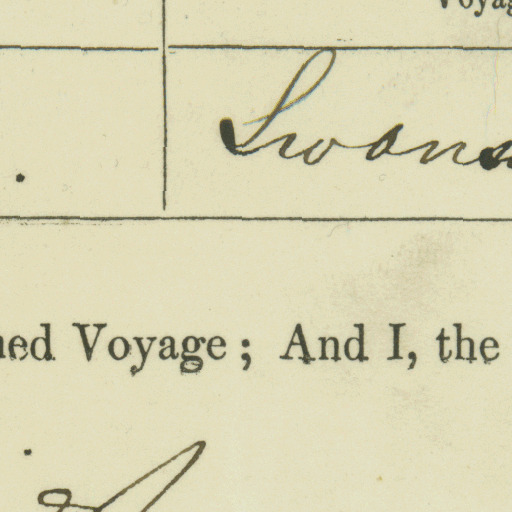 Voyag
Swans
ned Voyage; And I, the